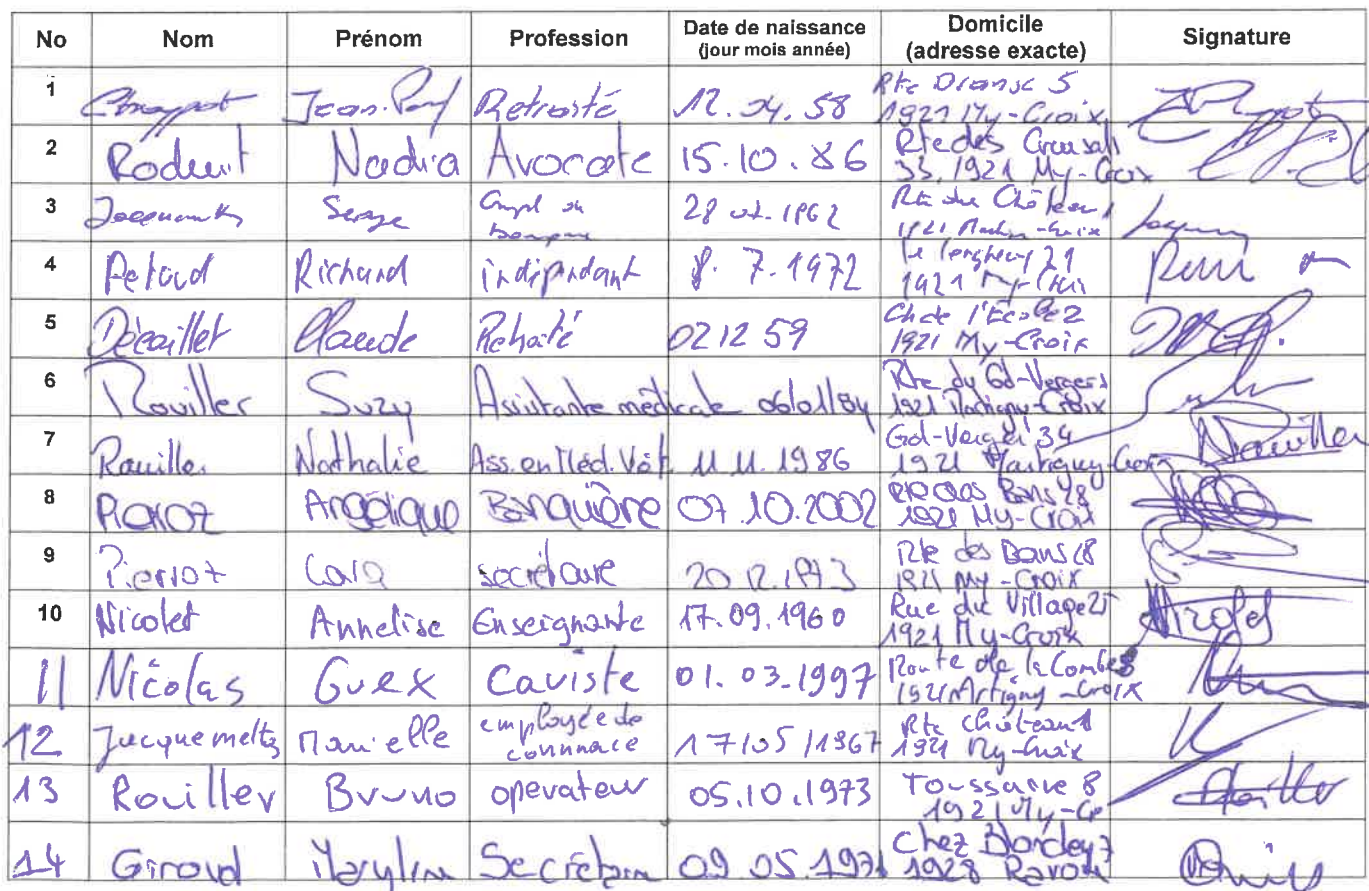 No Nom Prénom Profession Date de naissance (jour mois année) Domicile (adresse exacte) Signature
1 Jean-Paul Retraité 12.04.58 Rte Dranse 5
1921 My-Croix
2 Roduit Nadia Avocate 15.10.86 Rte des
33, 1921 My-Croix
3 Serge Empl de 28 07-1962 Rte du Château 1
banque 1921 Martigny-Croix
4 Petoud Richard indépendant 8.7.1972 21
1921 My-Croix
5 Décaillet Claude Retraité 02 12 59 Ch de l'Ecole 2
1921 My-Croix
6 Rouiller Suzy Assistante médicale 06/01/84 Rte du Gd-Verger
1921 Martigny-Croix
7 Rouiller Nathalie Ass. en Méd. Vét. 11.11.1986 Gd-Verger 34
1921 Martigny-Croix Rouiller
8 Pierroz Angélique Banquière 07.10.2002 Rte des Bans 28
1921 My-Croix
9 Pierroz Carla secrétaire 20.12.1973 Rte des Bans 28
1921 My-Croix
10 Nicolet Annelise Enseignante 17.09.1960 Rue du Village 25
1921 My-Croix Nicolet
11 Nicolas Guex Caviste 01.03.1997 Route de la Combe 8
1921 Martigny-Croix
12 Jacquemettaz Marielle employée de 17/05/1967 Rte château 1
commerce 1921 My-Croix
13 Rouiller Bruno operateur 05.10.1973 Toussaine 8
1921 My-Cr Rouiller
14 Giroud Maryline Secrétaire 09.05.1971 Chez
1928 Ravoire